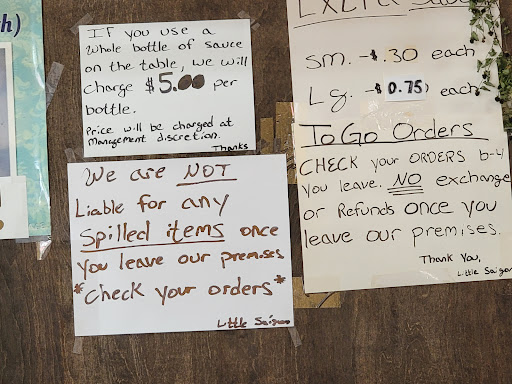 h)
If you use a
whole bottle of sauce
on the table, we will
charge $5.00 per
bottle.
Price will be charged at
Management discretion.
Thanks
We are NOT
Liable for any
spilled items once
you leave our premises
*Check your orders*
Little Saigon
sm. - $.30 each
Lg. - $0.75 each
To Go Orders
CHECK your ORDERS b-4
you leave. NO exchange
or Refunds once you
leave our premises.
Thank You,
Little Saigon